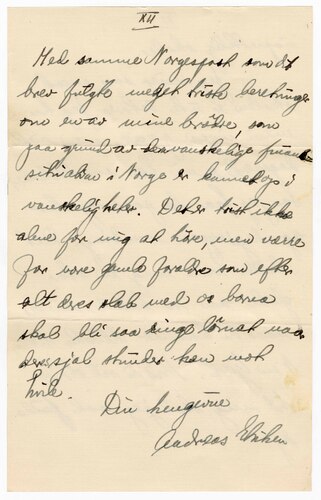 XII
Med samme Norgespost som dit
brev fulgte meget triste beretninger
om en av mine brødre, som
paa grund av den vanskelige finans
situation i Norge er kommet op i
vanskeligheter. Det er trist ikke
alene for mig at høre, men værre
for vore gamle forældre som efter
alt deres slab med os barna
skal bli saa ringe lønnet naar
deres stunder kan mot
hvile.
Din hengivne
Andreas